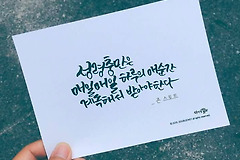 성령충만은
매일매일 하루의 매순간
계속해서 받아야한다
_존 스토트